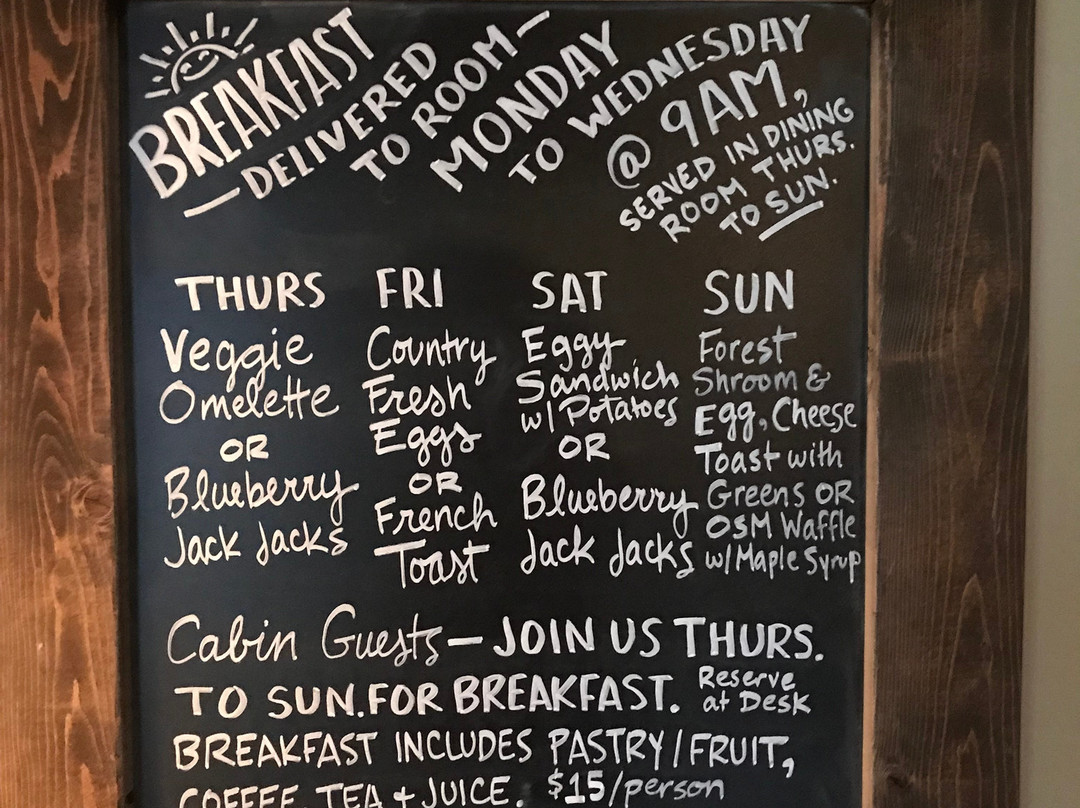 BREAKFAST
— DELIVERED
TO ROOM —
MONDAY
TO WEDNESDAY
@ 9AM,
SERVED IN DINING
ROOM THURS.
TO SUN.
THURS
Veggie
Omelette
OR
Blueberry
Jack Jacks
FRI
Country
Fresh
Eggs
OR
French
Toast
SAT
Eggy
Sandwich
w/ Potatoes
OR
Blueberry
Jack Jacks
SUN
Forest
Shroom &
Egg, Cheese
Toast with
Greens OR
OSM Waffle
w/ Maple Syrup
Cabin Guests — JOIN US THURS.
TO SUN. FOR BREAKFAST. Reserve
at Desk
BREAKFAST INCLUDES PASTRY/FRUIT,
COFFEE, TEA + JUICE. $15/person